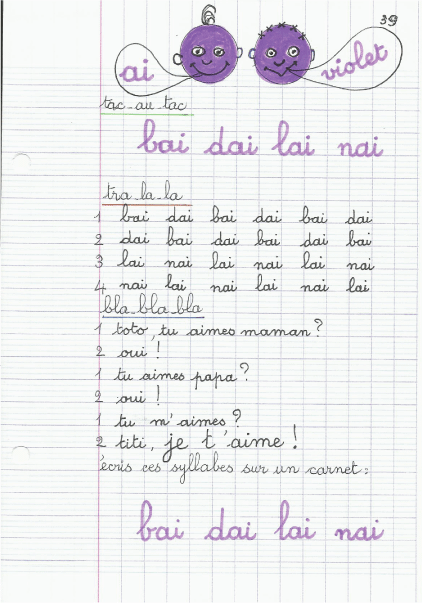 39
ai
violet
tac-au tac
bai dai lai nai
tra-la-la
1 bai dai bai dai bai dai
2 dai bai dai bai dai bai
3 lai nai lai nai lai nai
4 nai lai nai lai nai lai
bla-bla-bla
1 toto, tu aimes maman ?
2 oui !
1 tu aimes papa ?
2 oui !
1 tu m'aimes ?
2 titi, je t'aime !
écris ces syllabes sur un carnet :
bai dai lai nai